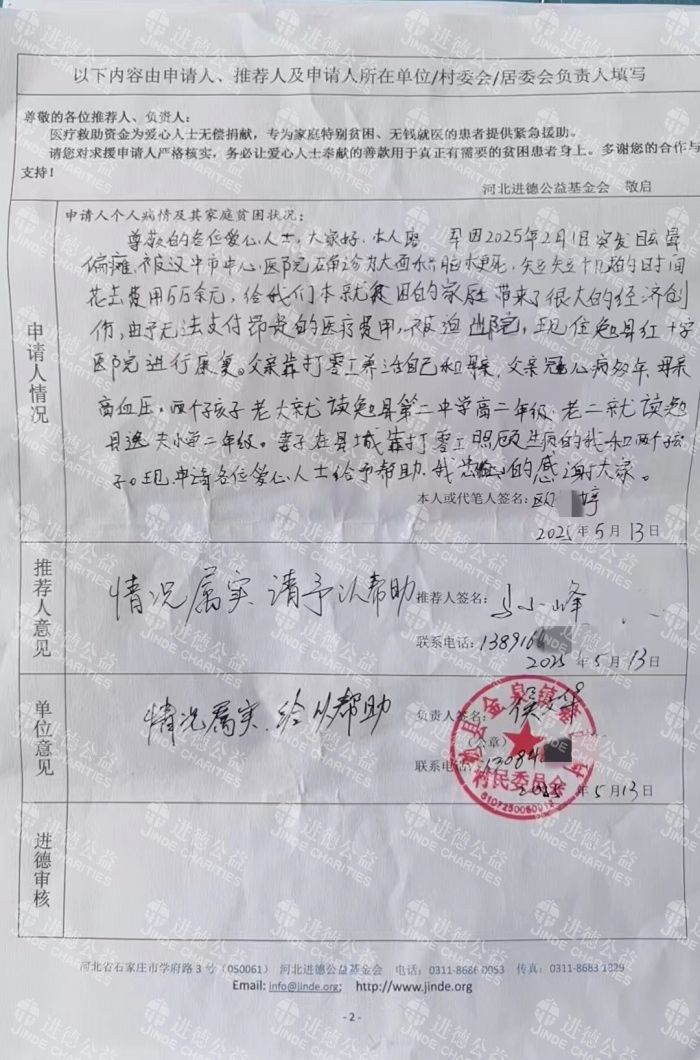 以下内容由申请人、推荐人及申请人所在单位/村委会/居委会负责人填写
尊敬的各位推荐人、负责人：
医疗救助资金为爱心人士无偿捐献，专为家庭特别贫困、无钱就医的患者提供紧急援助。
请您对求援申请人严格核实，务必让爱心人士奉献的善款用于真正有需要的贫困患者身上。多谢您的合作与
支持！
河北进德公益基金会 敬启
申请人情况
申请人个人病情及其家庭贫困状况：
尊敬的各位爱心人士，大家好，本人 军因2025年2月1日突发眩晕
偏瘫，被汉中市中心医院确诊为大面积脑梗死，短短十几的时间
花去费用6万余元，给我们本就贫困的家庭带来了很大的经济创
伤，由于无法支付昂贵的医疗费用，被迫出院，现住勉县红十字
医院进行康复。父亲靠打零工养活自己和母亲，父亲冠心病多年，母亲
高血压，两个孩子老大就读勉县第二中学高二年级，老二就读勉
县逸夫小学二年级。妻子在县城靠打零工照顾生病的我和两个孩
子。现申请各位爱心人士给予帮助，我衷心的感谢大家。
本人或代笔人签名： 婷
2025年5月13日
推荐人意见
情况属实，请予以帮助
推荐人签名： 小峰
联系电话：138916
2025年5月13日
单位意见
情况属实，给以帮助
负责人签名：
（公章）
联系电话：13084
2025年5月13日
村民委员会
进德审核
河北省石家庄市学府路3号（050061） 河北进德公益基金会 电话：0311-8686 0053 传真：0311-8683 1829
Email: info@jinde.org; http://www.jinde.org
- 2 -
进德公益
JINDE CHARITIES